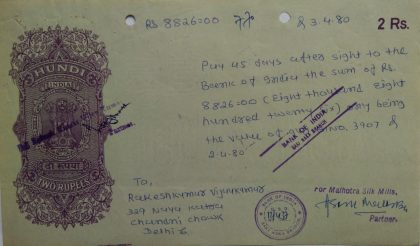 Rs. 8826=00
3-4-80
2 Rs.
HUNDI
INDIA
दो रुपया
TWO RUPEES
Partner.
Pay 45 days after sight to the
Bank of India the sum of Rs.
8826=00 (Eight thousand Eight
hundred twenty six) only being
the value of NO. 3907 &
2-4-80
BANK OF INDIA
To,
Rakeshkumar Vijaykumar
329 Naya Katra
Chandni Chowk
Delhi 6
BANK OF INDIA
For Malhotra Silk Mills,
Partner.